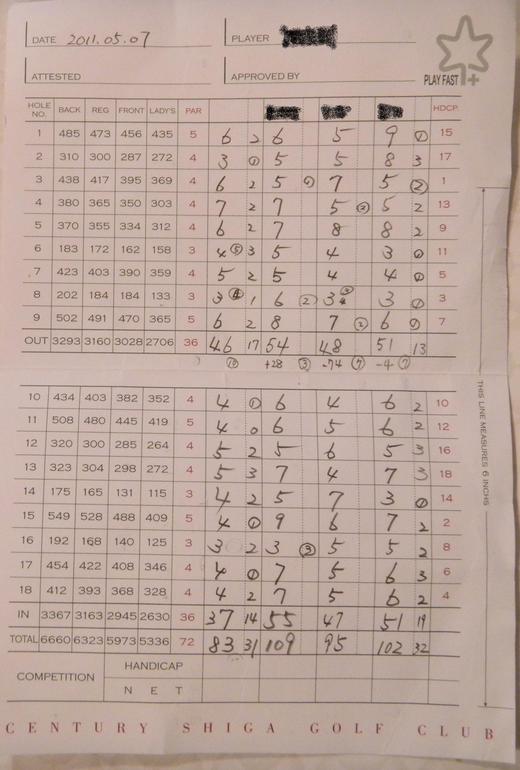 DATE 2011.05.07 PLAYER
ATTESTED APPROVED BY PLAY FAST
HOLE NO. BACK REG FRONT LADY'S PAR HDCP.
1 485 473 456 435 5 6 2 6 5 9 ① 15
2 310 300 287 272 4 3 ① 5 5 8 3 17
3 438 417 395 369 4 6 2 5 7 5 ② 1
4 380 365 350 303 4 7 2 7 5 ② 5 2 13
5 370 355 334 312 4 6 2 7 8 8 2 9
6 183 172 162 158 3 4 ⑤ 3 5 4 3 ① 11
7 423 403 390 359 4 5 2 5 4 4 ① 5
8 202 184 184 133 3 3 ④ 1 6 ② 3 3 ① 3
9 502 491 470 365 5 6 2 8 7 ② 6 ① 7
OUT 3293 3160 3028 2706 36 46 17 54 48 51 13
⑩ +28 ③ -74 ⑦ -4 ⑦
10 434 403 382 352 4 4 ① 6 4 6 2 10
11 508 480 445 419 5 4 0 6 5 6 2 12
12 320 300 285 264 4 5 2 5 6 5 3 16
13 323 304 298 272 4 5 3 7 4 7 3 18
14 175 165 131 115 3 4 2 5 7 3 ① 14
15 549 528 488 409 5 4 ① 9 6 7 2 2
16 192 168 140 125 3 3 2 3 ③ 5 5 2 8
17 454 422 408 346 4 4 ① 7 5 6 3 6
18 412 393 368 328 4 4 2 7 5 6 2 4
IN 3367 3163 2945 2630 36 37 14 55 47 51 19
TOTAL 6660 6323 5973 5336 72 83 31 109 95 102 32
COMPETITION HANDICAP
NET
THIS LINE MEASURES 6 INCHS
CENTURY SHIGA GOLF CLUB